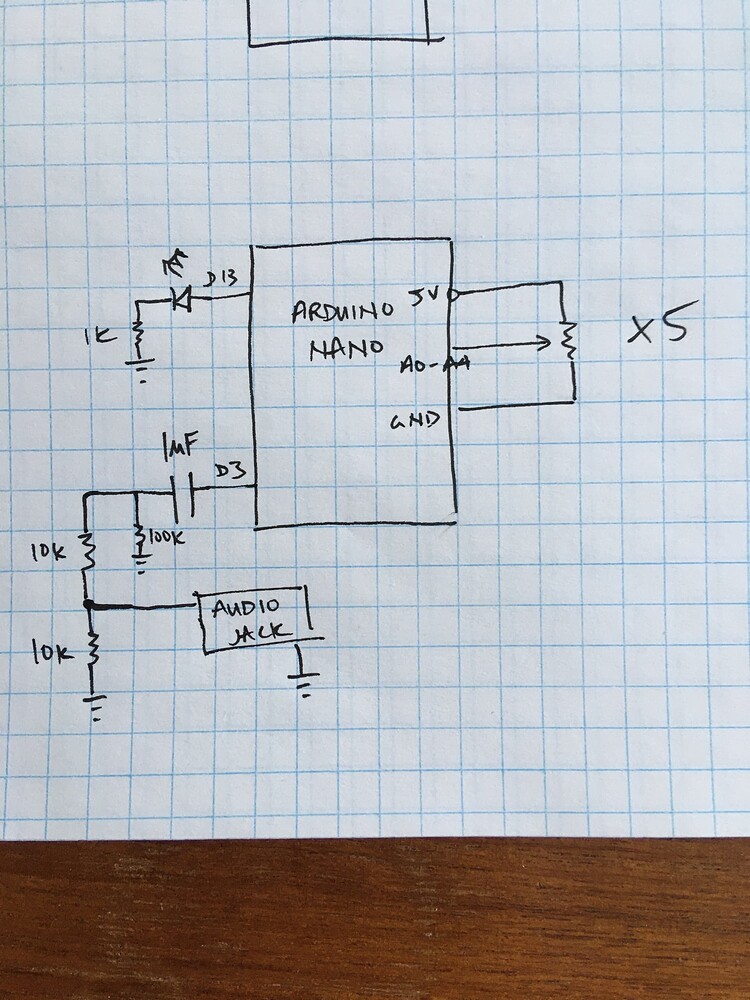 D13
1K
ARDUINO
NANO
5V
A0-A4
GND
x5
1µF
D3
100K
10K
10K
AUDIO
JACK